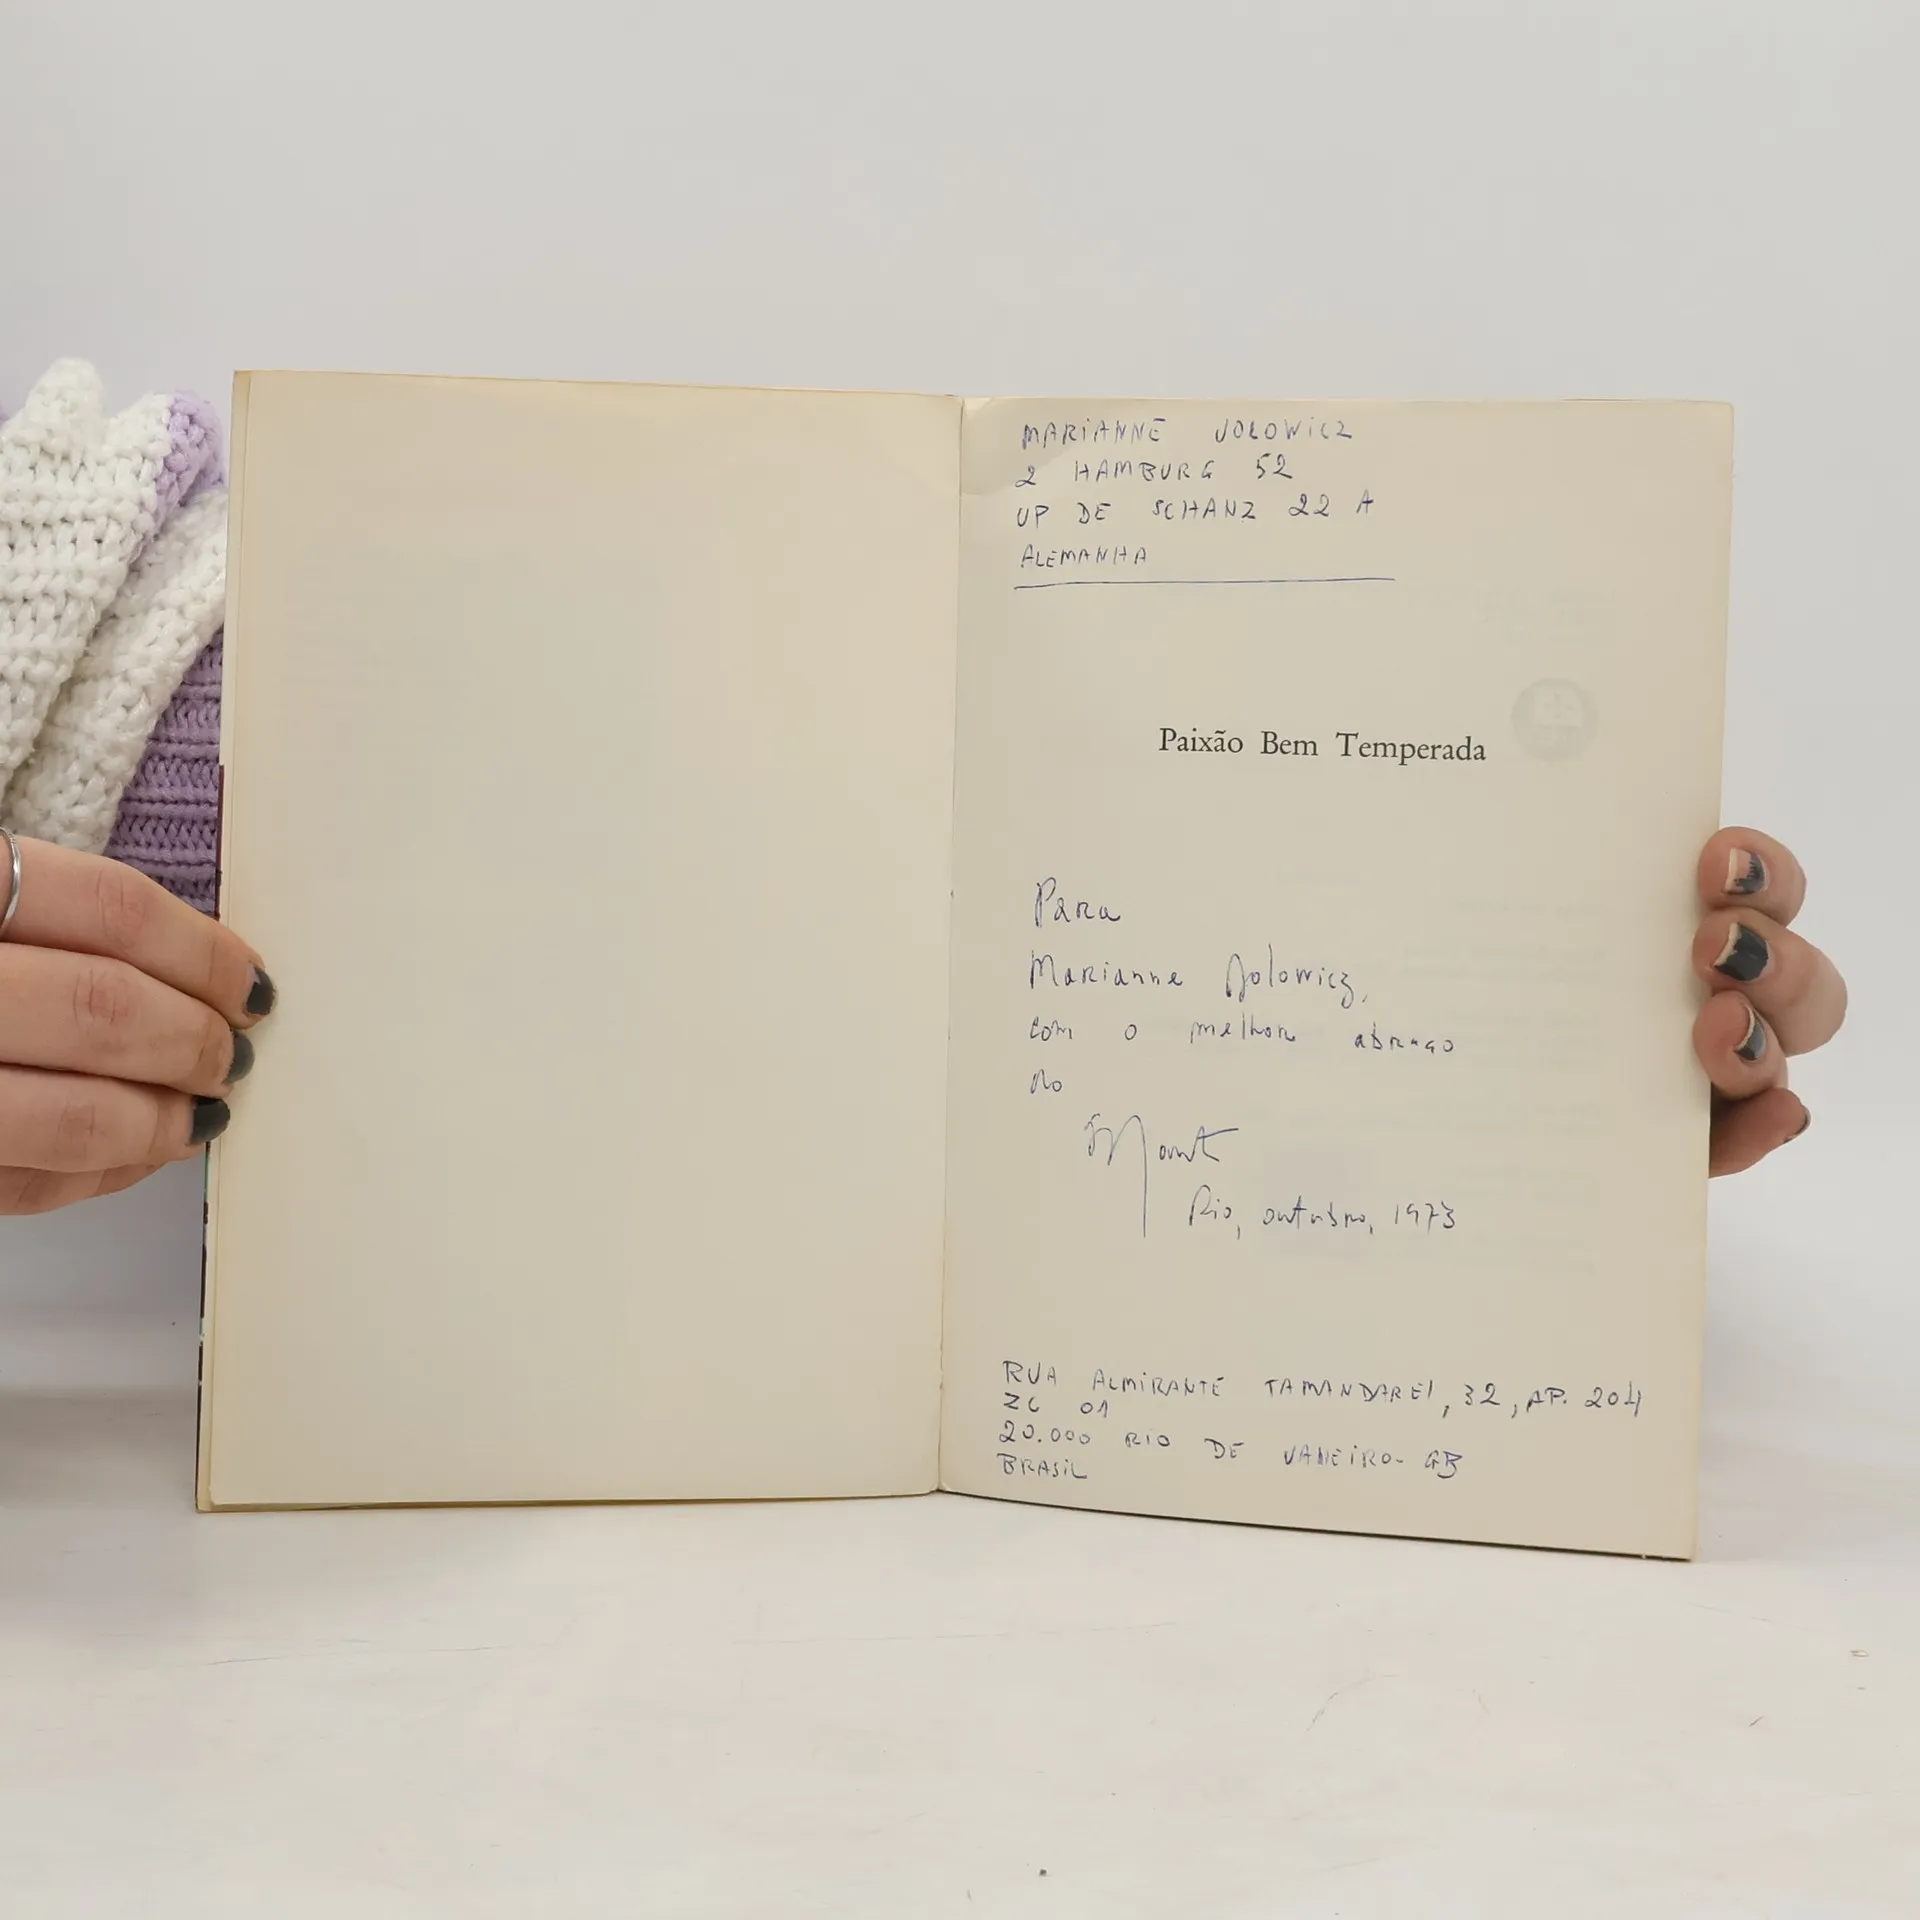 MARIANNE JOLOWICZ
2 HAMBURG 52
UP DE SCHANZ 22 A
ALEMANHA
Paixão Bem Temperada
Para
Marianne Jolowicz,
com o melhor abraço
do
Rio, outubro, 1973
RUA ALMIRANTE TAMANDARÉ, 32, AP. 204
ZC 01
20.000 RIO DE JANEIRO - GB
BRASIL